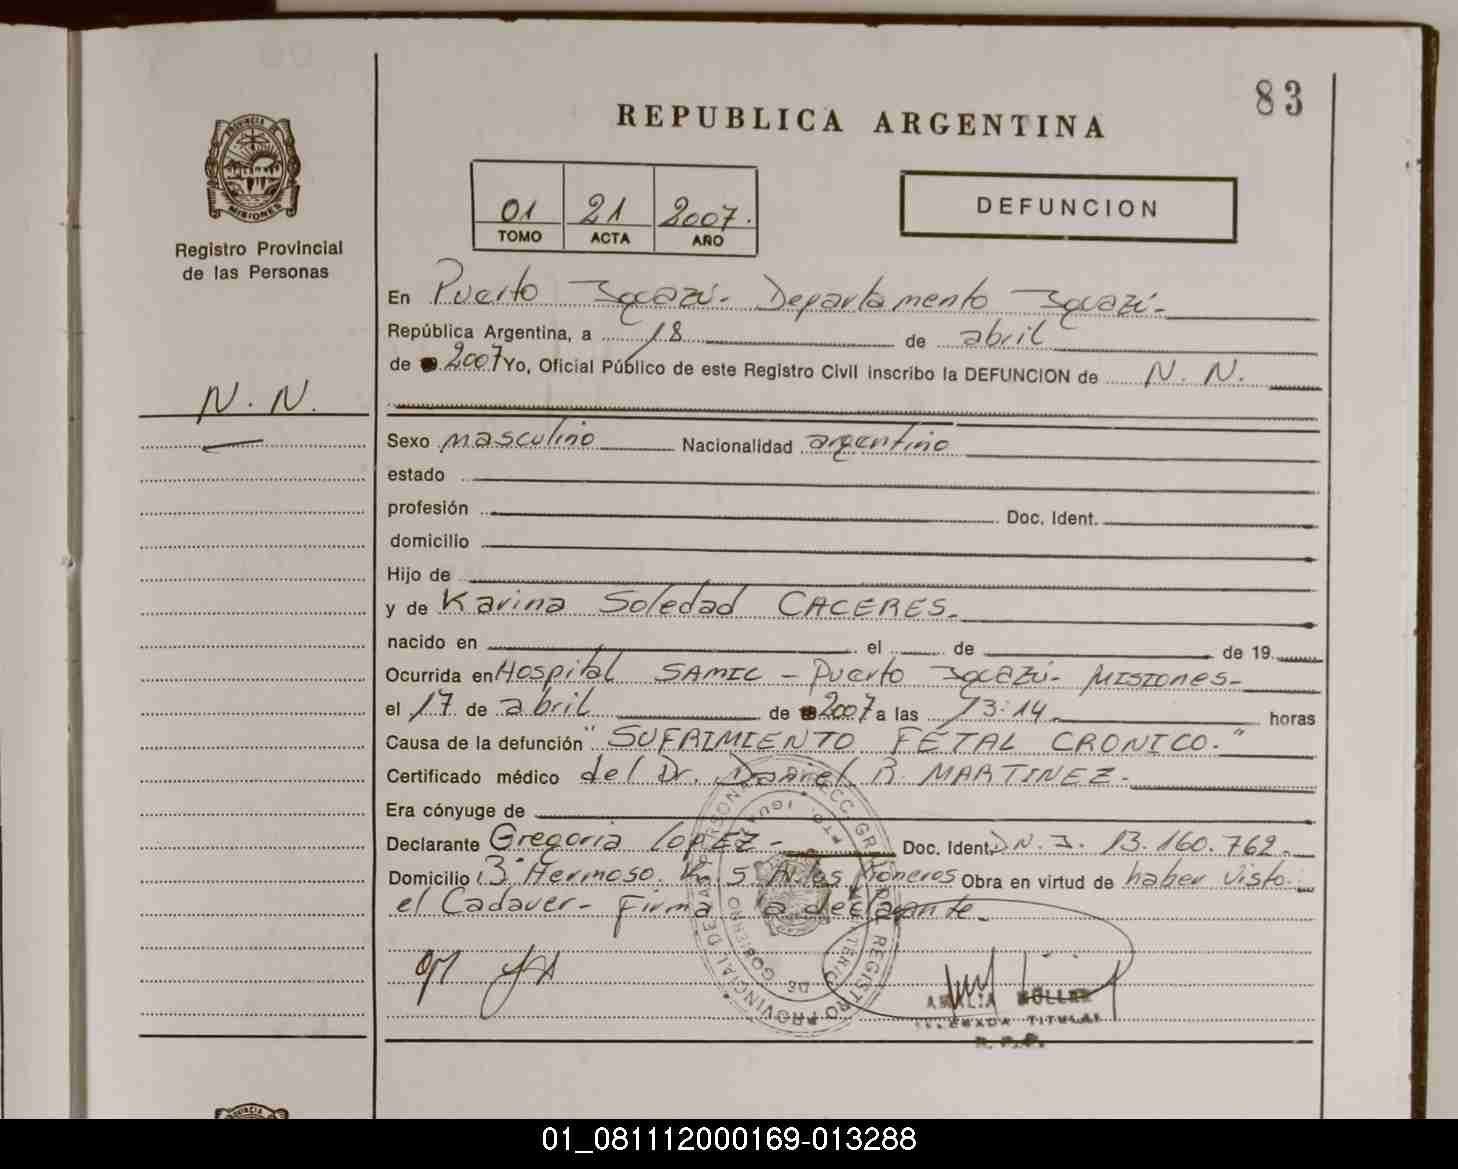 83
REPUBLICA ARGENTINA
PROVINCIA DE
MISIONES
Registro Provincial
de las Personas
01 21 2007.
TOMO ACTA AÑO
DEFUNCION
En Puerto Iguazú - Departamento Iguazú -
República Argentina, a 18 de abril
de 2007 Yo, Oficial Público de este Registro Civil inscribo la DEFUNCION de N. N.
N. N.
Sexo masculino Nacionalidad argentino
estado
profesión Doc. Ident.
domicilio
Hijo de
y de Karina Soledad CACERES -
nacido en el de de 19
Ocurrida en Hospital SAMIC - Puerto Iguazú - MISIONES -
el 17 de abril de 2007 a las 13:14 horas
Causa de la defunción "SUFRIMIENTO FETAL CRONICO."
Certificado médico del Dr. Daniel R. MARTINEZ -
Era cónyuge de
Declarante Gregoria LOPEZ - Doc. Ident. D.N.I. 13.160.762 -
Domicilio B° Hermoso. Km 5. A. los Pioneros Obra en virtud de haber visto
el Cadaver - Firma la declarante -
REGISTRO PROVINCIAL DE LAS PERSONAS
AMALIA MÜLLER
DELEGADA TITULAR
R. P. P.
01_081112000169-013288